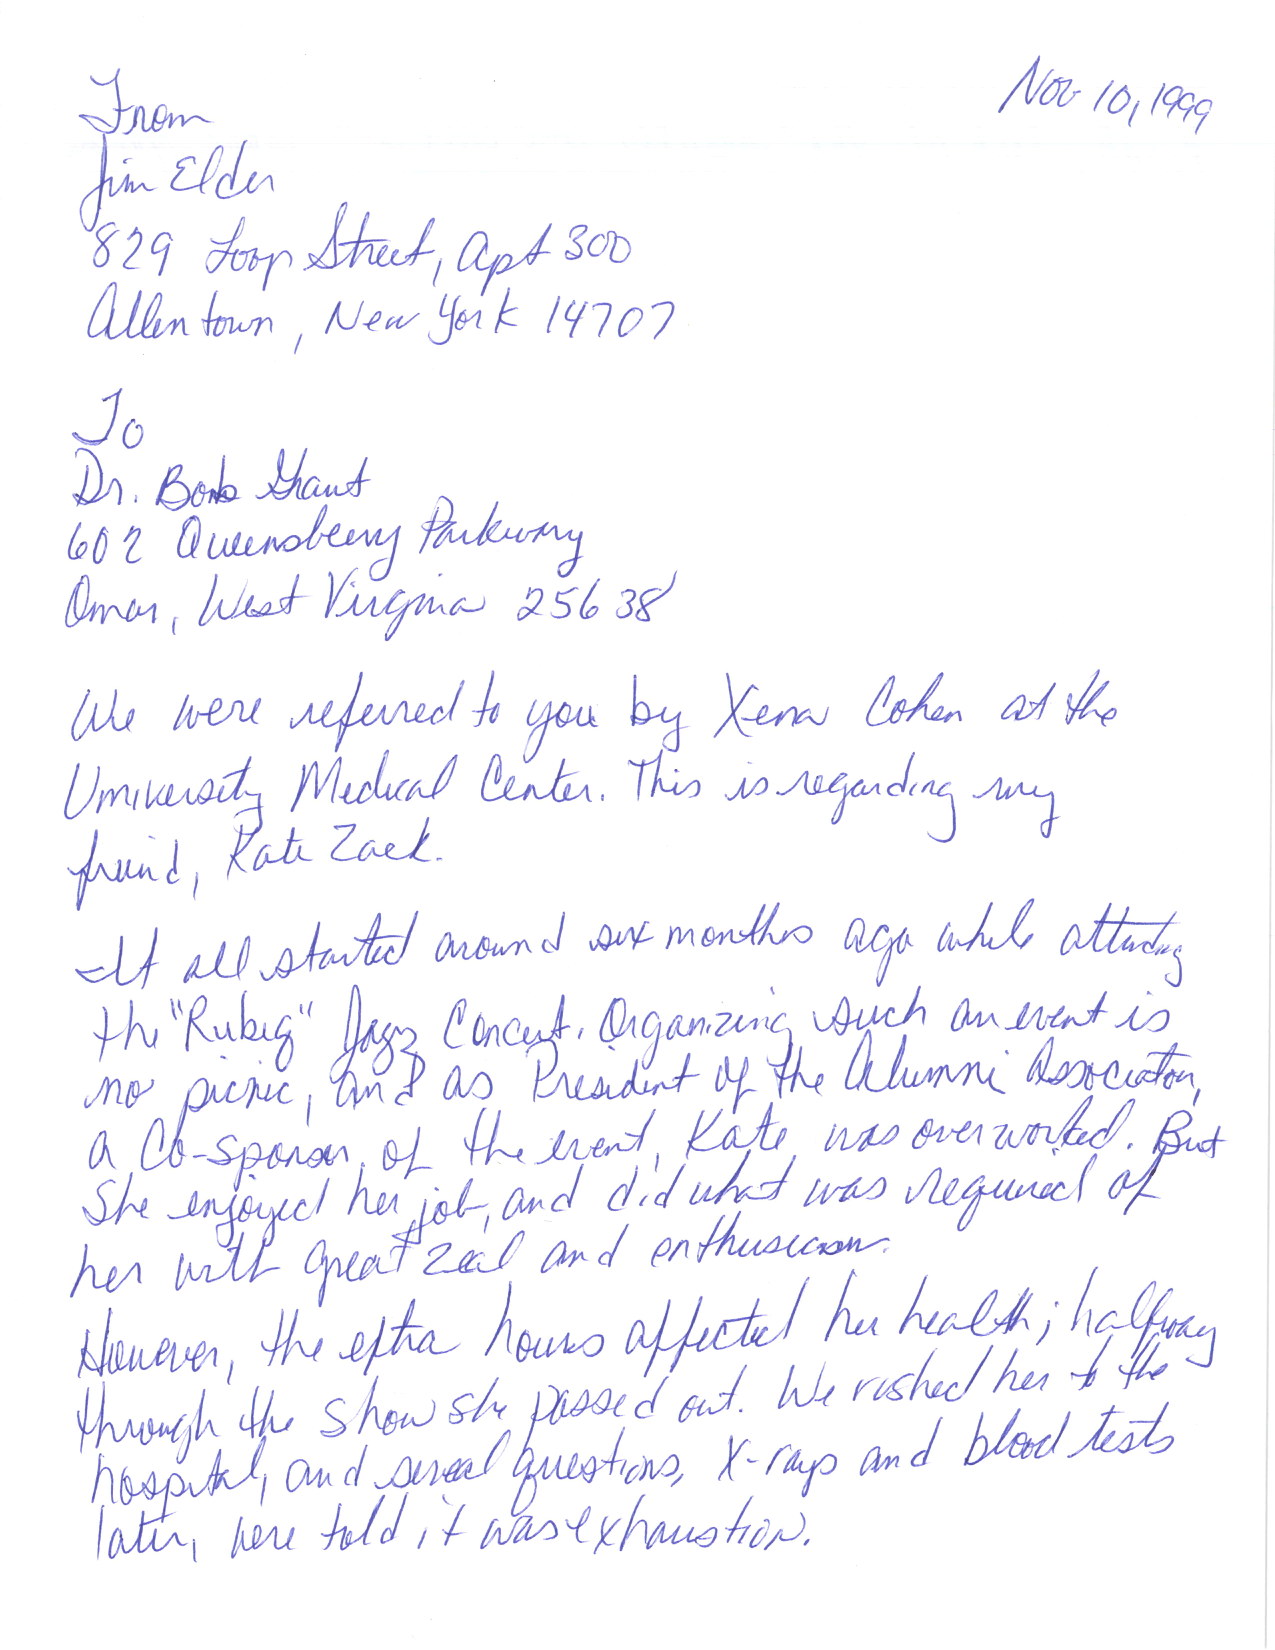 Nov 10, 1999
From
Jim Elder
829 Loop Street, Apt 300
Allentown, New York 14707
To
Dr. Bob Grant
602 Queensberry Parkway
Omar, West Virginia 25638
We were referred to you by Xena Cohen at the
University Medical Center. This is regarding my
friend, Kate Zack.
It all started around six months ago while attending
the "Rubeq" Jazz Concert. Organizing such an event is
no picnic, and as President of the Alumni Association,
a Co-sponsor of the event, Kate was overworked. But
She enjoyed her job, and did what was required of
her with great zeal and enthusiasm.
However, the extra hours affected her health; halfway
through the show she passed out. We rushed her to the
hospital, and several questions, x-rays and blood tests
later, were told it was exhaustion.